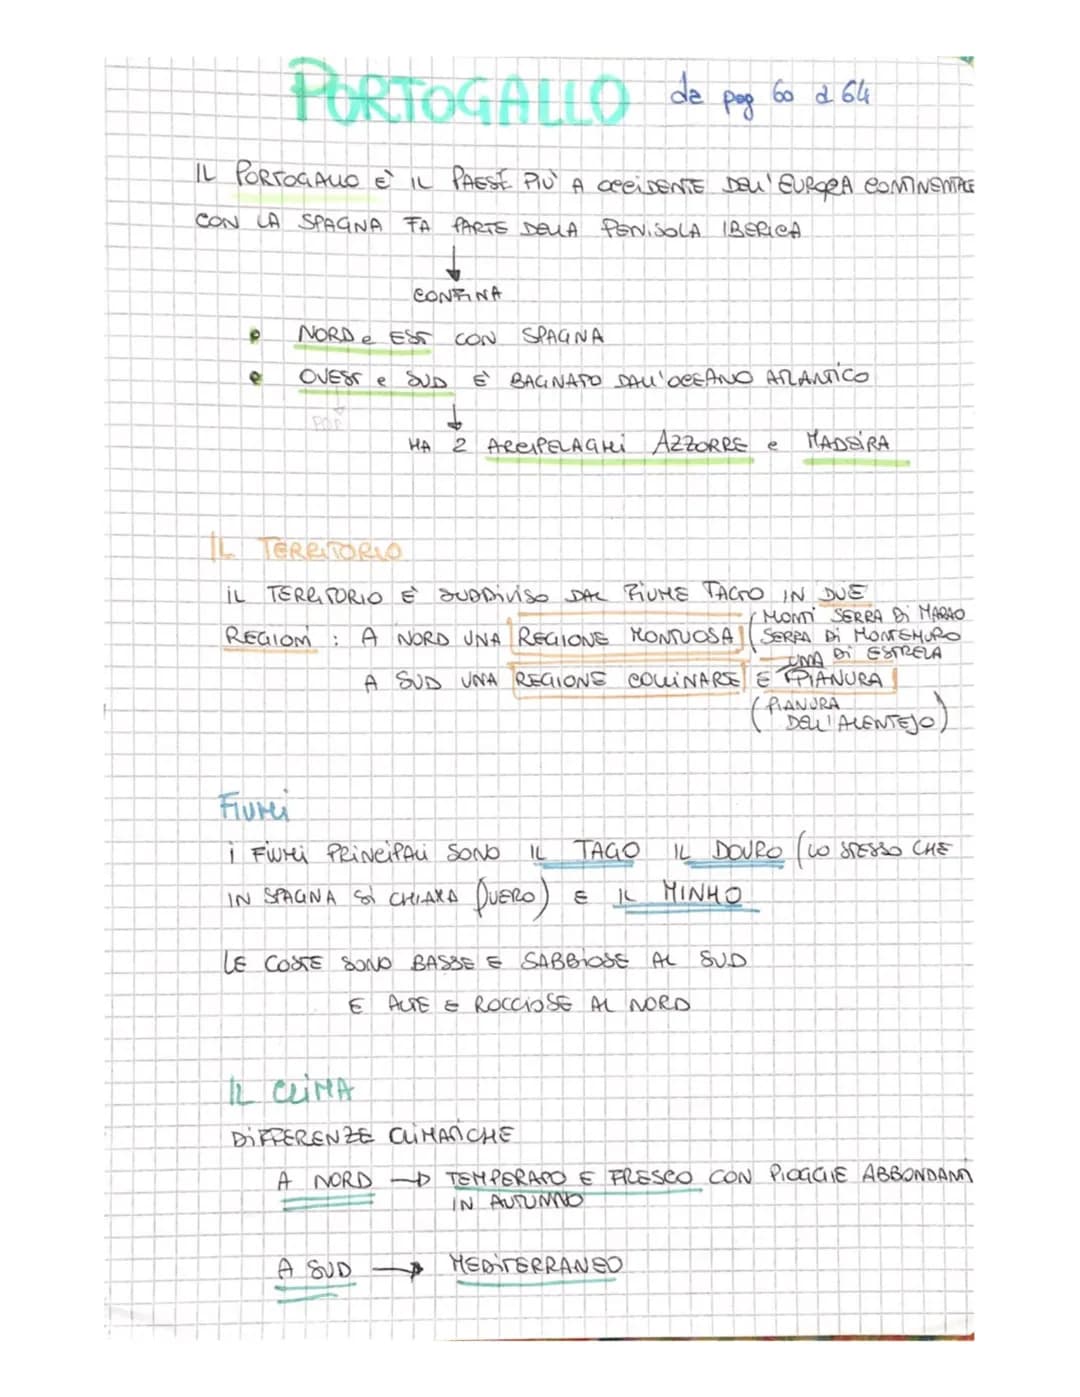 PORTOGALLO da pag 60 a 64
IL PORTOGALLO E' IL PAESE PIU' A OCCIDENTE DELL'EUROPA CONTINENTALE
CON LA SPAGNA FA PARTE DELLA PENISOLA IBERICA
↓
CONFINA
• NORD e EST CON SPAGNA
• OVEST e SUD E' BAGNATO DALL'OCEANO ATLANTICO
↓
HA 2 ARCIPELAGHI AZZORRE e MADEIRA
IL TERRITORIO
IL TERRITORIO E' SUDDIVISO DAL FIUME TAGO IN DUE
REGIONI : A NORD UNA REGIONE MONTUOSA (MONTI SERRA DI MARAO
SERRA DI MONTEMURO
DI ESTRELA
A SUD UNA REGIONE COLLINARE E UNA PIANURA
(PIANURA
DELL'ALENTEJO)
FIUMI
I FIUMI PRINCIPALI SONO IL TAGO IL DOURO (LO STESSO CHE
IN SPAGNA SI CHIAMA DUERO) E IL MINHO
LE COSTE SONO BASSE E SABBIOSE AL SUD
E ALTE E ROCCIOSE AL NORD
IL CLIMA
DIFFERENZE CLIMATICHE
A NORD → TEMPERATO E FRESCO CON PIOGGIE ABBONDANTI
IN AUTUNNO
A SUD → MEDITERRANEO